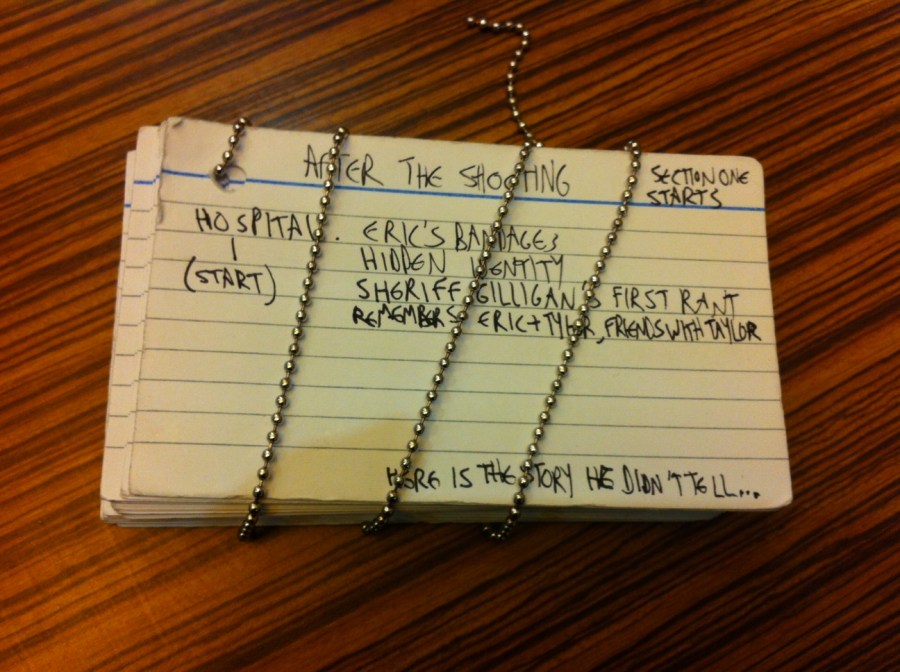 AFTER THE SHOOTING
SECTION ONE
STARTS
HOSPITAL.
(START)
ERIC'S BANDAGES
HIDDEN IDENTITY
SHERIFF GILLIGAN'S FIRST RANT
REMEMBERS ERIC + TYLER, FRIENDS WITH TAYLOR
HERE IS THE STORY HE DIDN'T TELL...